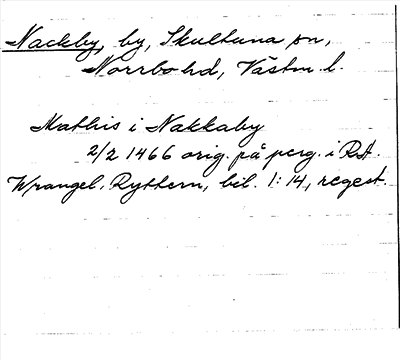 Nackby, by, Skultuna sn,
Norrbo hd, Västm. l.
Mathis i Nakkaby
2/2 1466 orig. på perg. i RA.
Wrangel, Ryttern, bil. 1:14, regest.